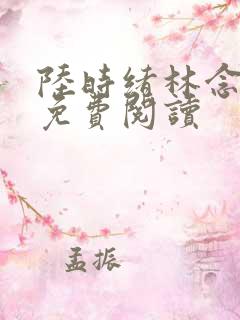 陸時緒林念
免費閱讀
孟振